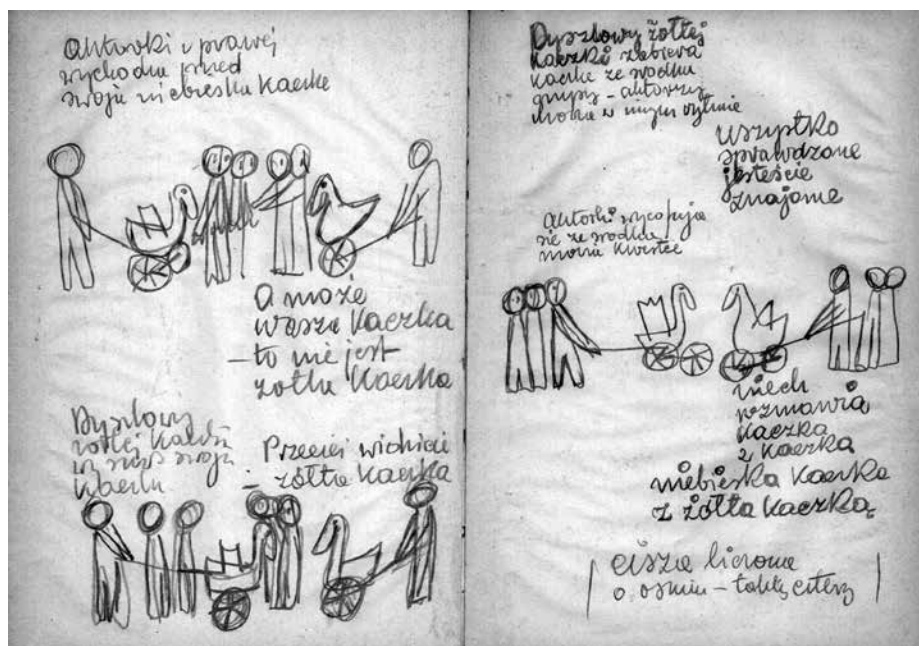 aktorki z prawej
wychodzą przed
swoją niebieską kaczkę
A może
wasza kaczka
– to nie jest
żółta kaczka
Dyszlowy
żółtej kaczki
swoją
kaczkę
Przecież widzicie
– żółta kaczka
Dyszlowy żółtej
kaczki zabiera
kaczkę ze środka
grupy – aktorzy
w innym rytmie
wszystko
sprawdzone
jesteście
znajome
aktorki wycofują
się ze środka
niech
rozmawia
kaczka
z kaczką
niebieska kaczka
z żółtą kaczką
cisza liczona
o ośmiu – takty cztery